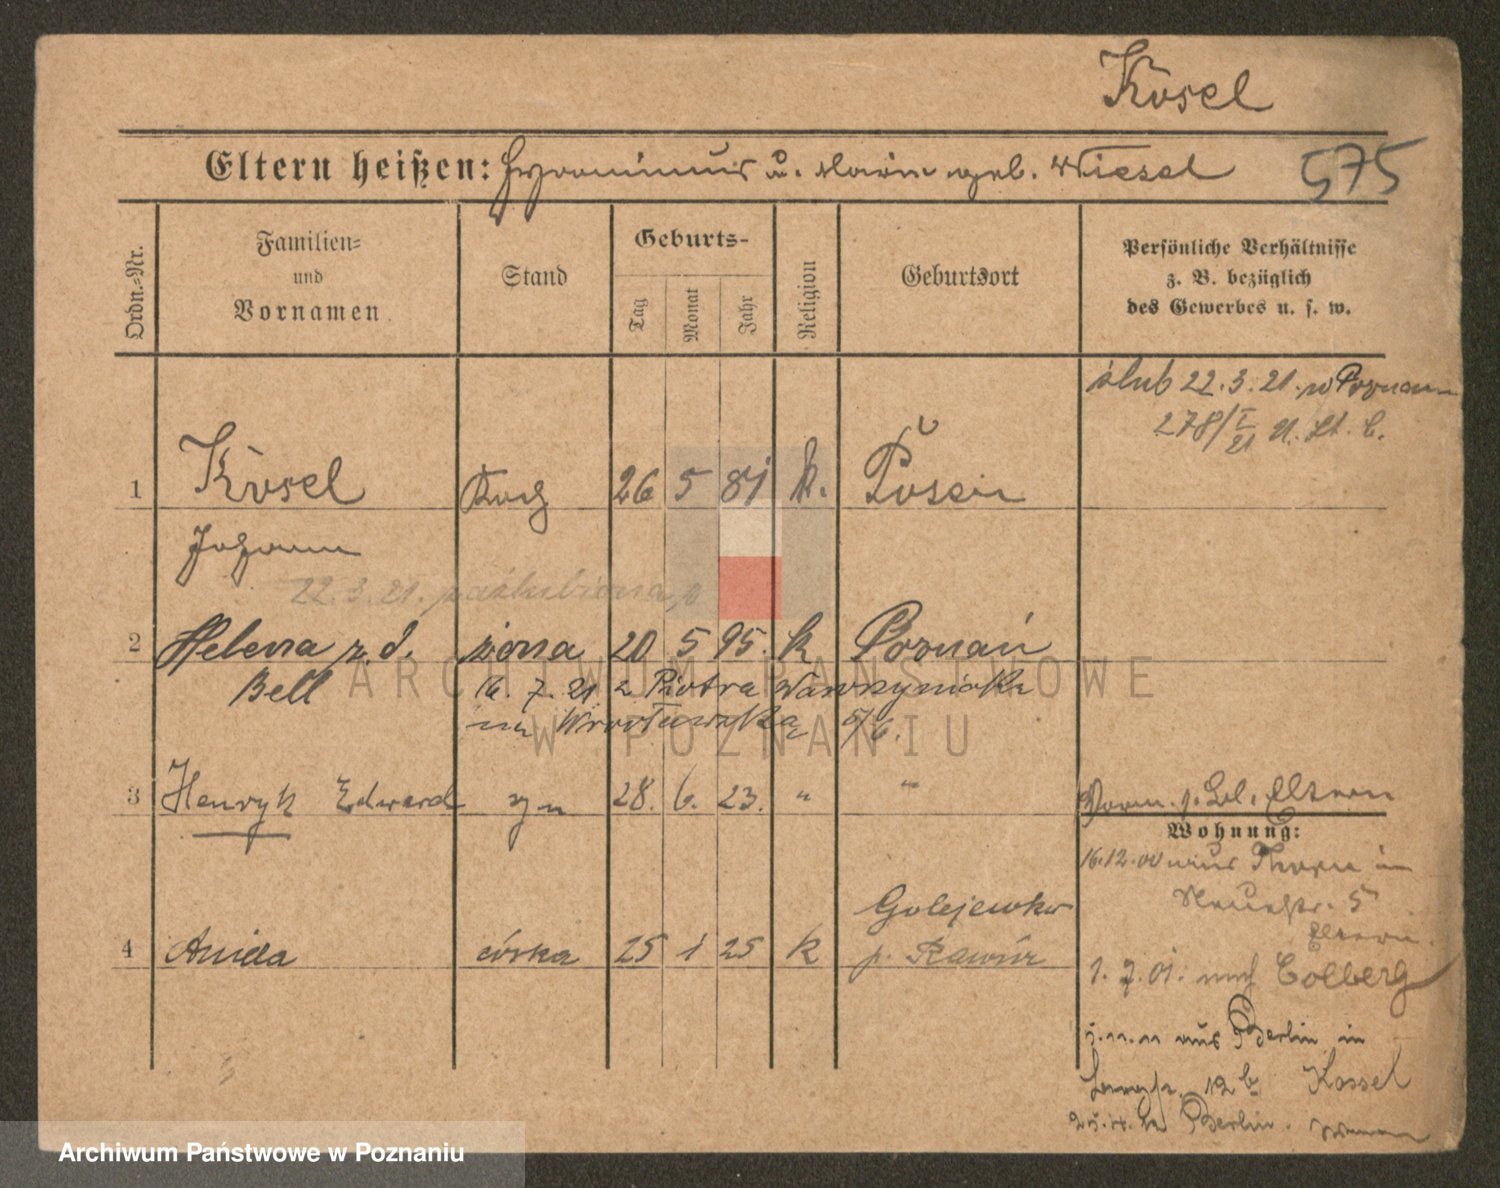 Kosel
Eltern heißen: Hyronimus u. Marie geb. Wiesel 575
Ordn.-Nr.
Familien-
und
Vornamen
Stand
Geburts-
Tag
Monat
Jahr
Religion
Geburtsort
Persönliche Verhältnisse
z. B. bezüglich
des Gewerbes u. s. w.
ślub 22.3.21. w Poznan
278/I 21 U. St. C.
1 Kosel Koch 26 5 81 k. Posen
Johann
22.3.21. zaślubiona
2 Helena z. d. żona 20 5 95. k Poznań
Bell 16. 7. 21 z Piotra Wawrzyniaka
na 5/6.
3 Henryk Edward syn 28. 6. 23. " "
Eltern
Wohnung:
16.12.00 aus Thorn in
5
Eltern.
Golejewko
4 córka 25 1 25 k p. Rawicz
1.7.01. nach Colberg
aus Berlin in
12b Kossel
Berlin.
ARCHIWUM PAŃSTWOWE
W POZNANIU
Archiwum Państwowe w Poznaniu